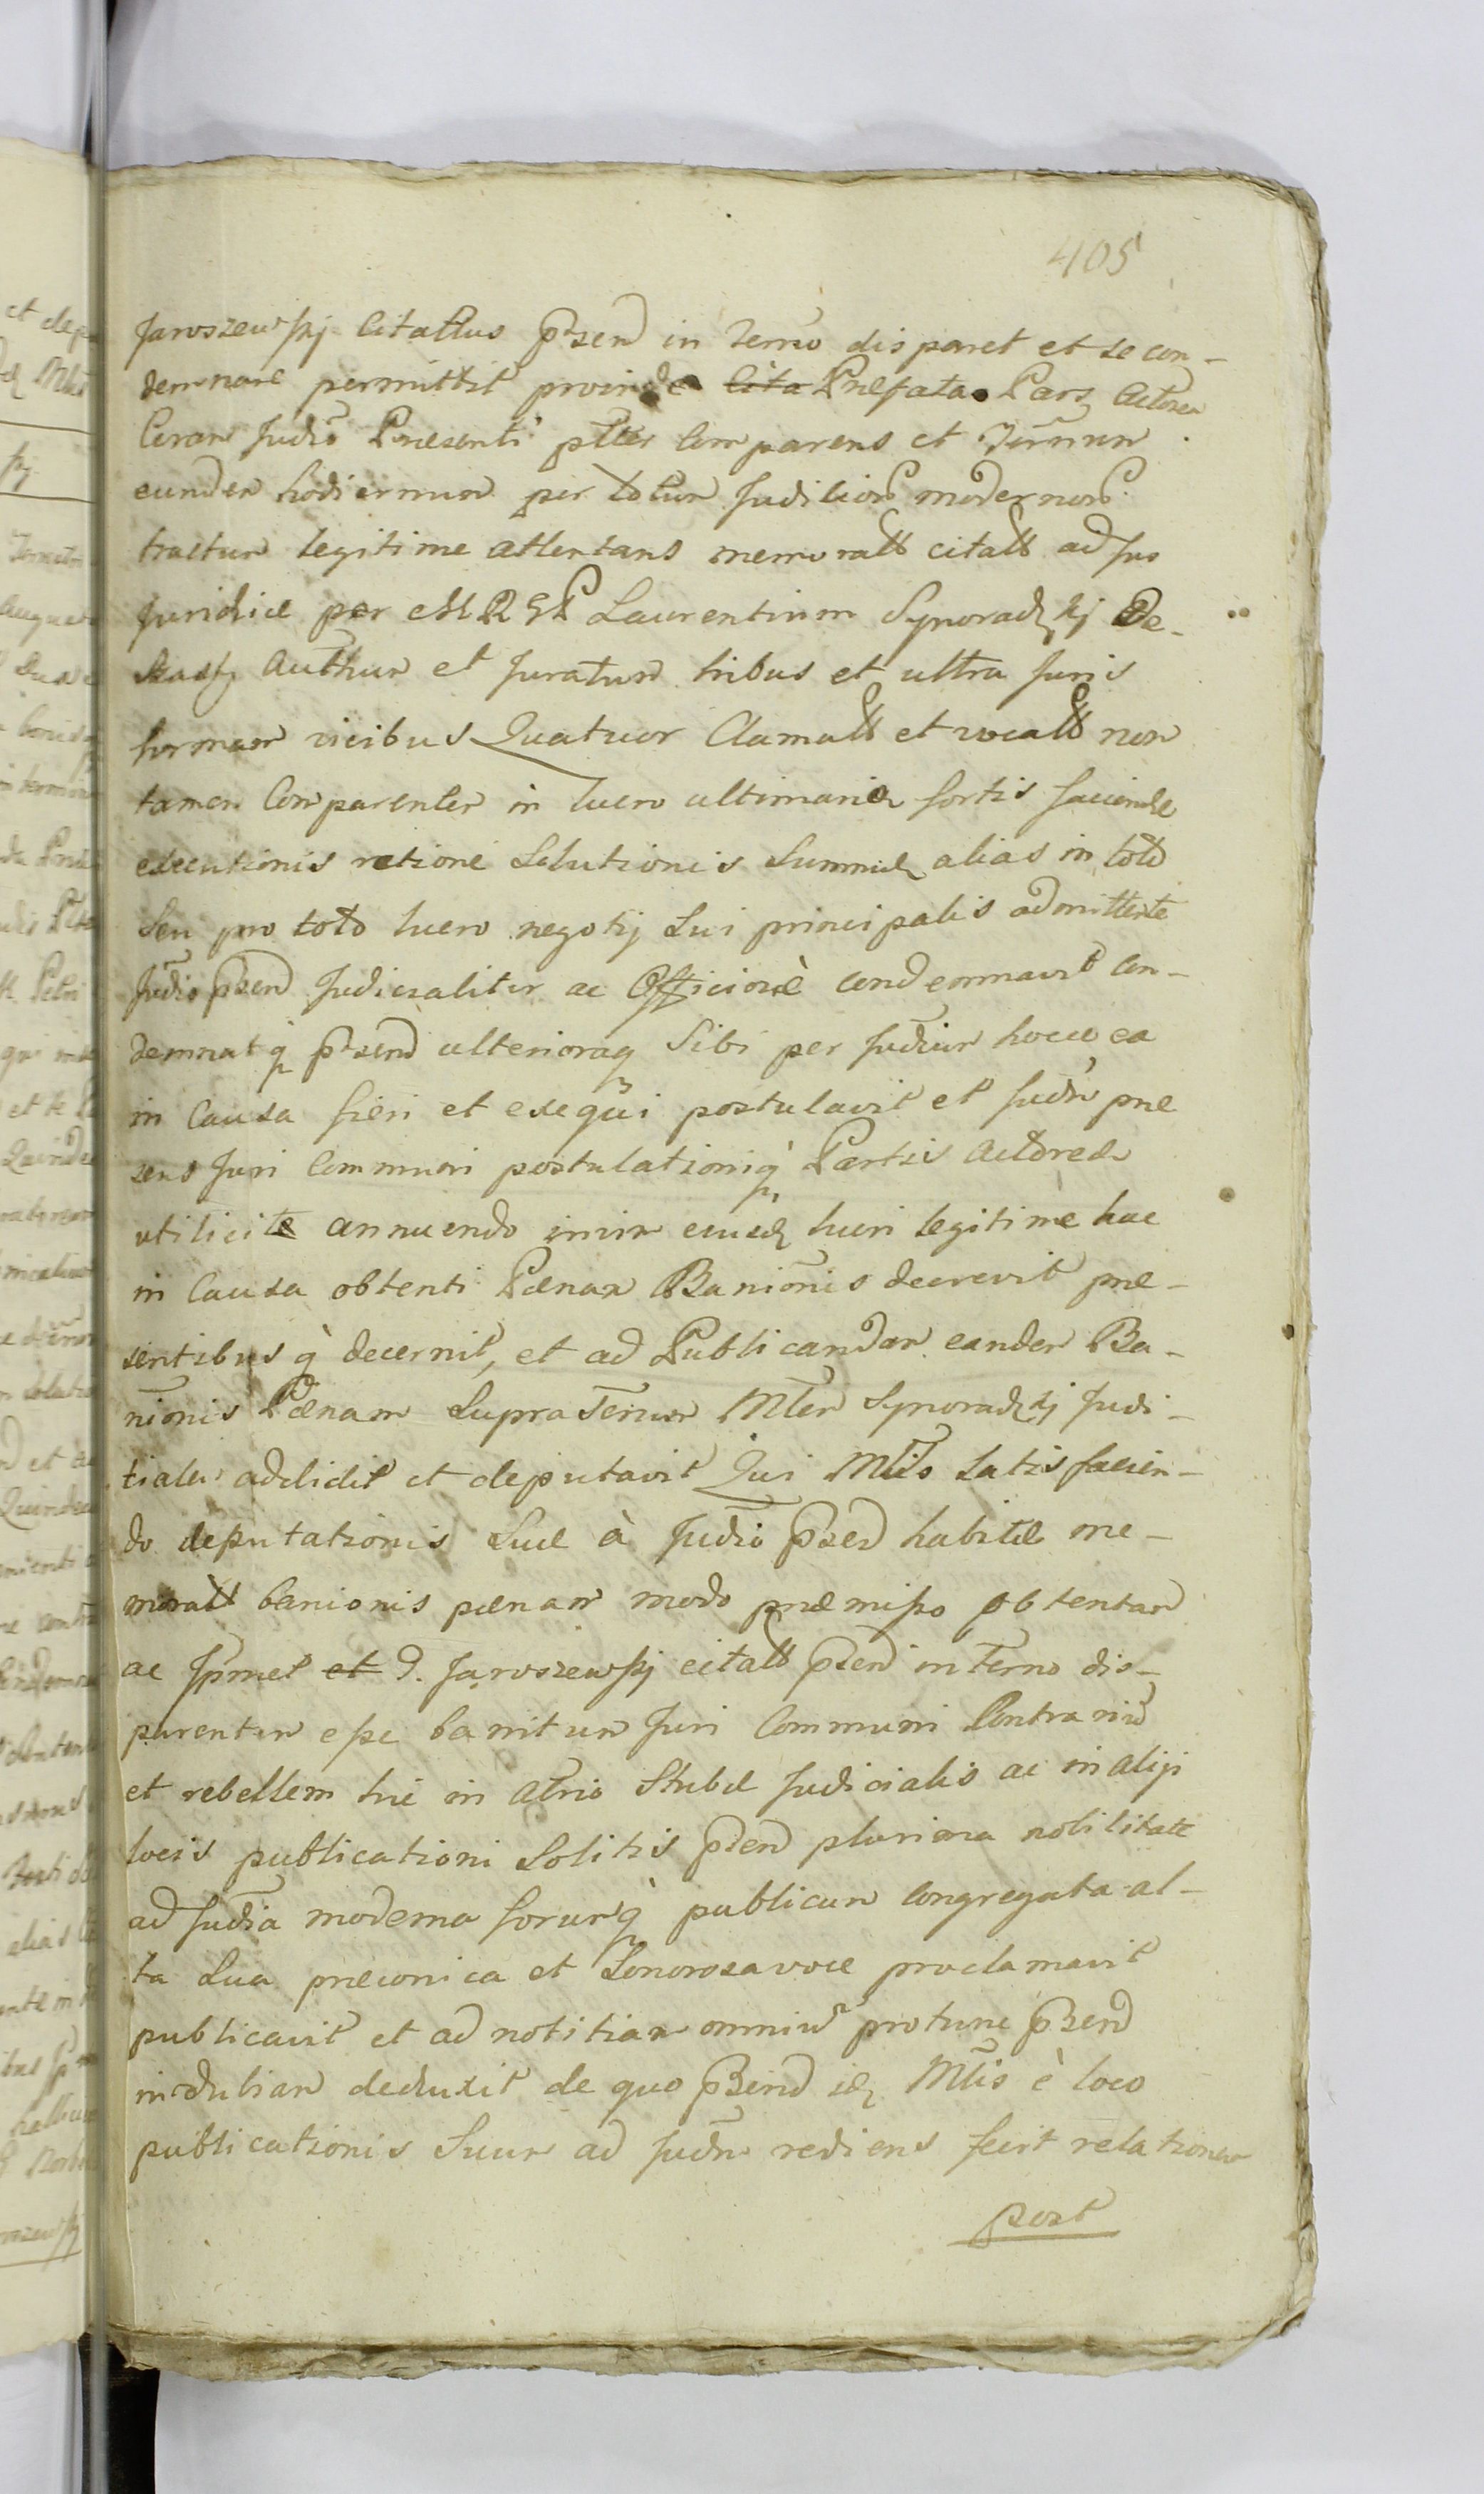 405
Jaroszewskj Citattus pñsend in Termo disparet et se con-
demnare permittit proinde Cita Præfata Pars Actorea
Coram Judio Præsenti ptter Comparens et Termum
eundem hodiernum per totum Judicior modernor
tractum legitime attentans memoratt citatt ad Jus
Juridice per MRGP Laurentium Synoradzkj De-
Authum et Juratum tribus et ultra Juris
formam vicibus Quatuor Clamatt et vocatt non
tamen Comparenter in lucro ultimaria sortis faciende
executionis ratione Solutionis Summæ alias in toto
Seu pro toto lucro negotij Sui principalis admittente
Judio pñsend Judicialiter ac Officiose condemnavit con-
demnatq pñsend ulterioraq Sibi per Judium hocce ea
in Causa fieri et exequi postulavit et Judm præ
sens Juri Communi postulationiq Partis Actoreæ
utilicite annuendo inim eiusd lucri legitime hac
in Causa obtenti Pænam Banionis decrevit præ-
sentibus q decernit, et ad Publicandam eandem Ba-
nionis Pænam Supra Termum Mtem Synoradzkj Judi-
tialem addidit et deputavit Qui Mtis Satis facien-
do deputationis Suæ à Judio pñsend habitæ me-
moratt banionis pænam modo præmisso obtentam
ac Jpmet et d. Jaroszewskj citatt pñsend in Termo dis-
parentem esse banitum Juri Communi Contrarium
et rebellem hic in Atrio Stubæ Judicialis ac in alijs
locis publicationi Solitis pñsend plurima nobilitate
ad Judia moderna forumq publicum congregata al-
ta Sua præconica et Sonorosa voce proclamavit
publicavit et ad notitiam omnium protunc pñsend
indubiam deduxit de quo pñsend id Mtis è loco
publicationis Suum ad Judm rediens fecit relationem
post